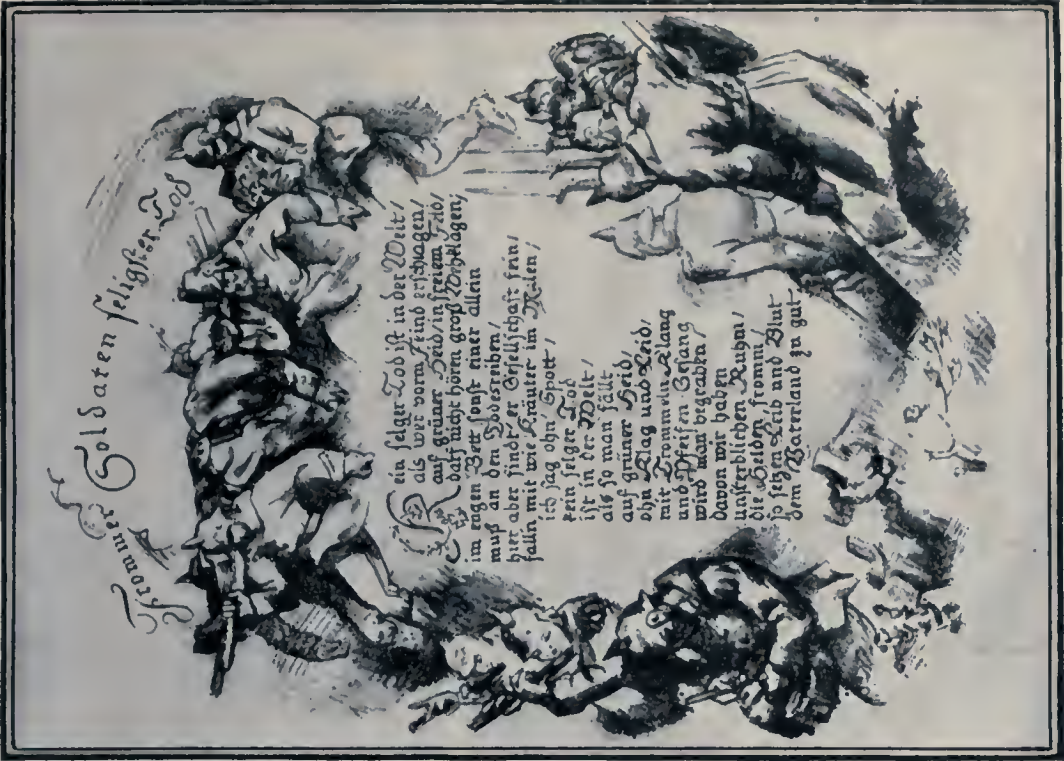 Frommer Soldaten seligster Tod
Kein selger Tod ist in der Welt/
als wer vorm Feind erschlagen/
auf grüner Heid/in freiem Feld/
darf nicht hörn groß Wehklagen/
im engen Bett sonst einer allein
muß an den Todesreihen/
hier aber find't er Gesellschaft fein/
falln mit wie Kräuter im Maien/
ich sag ohn' Spott/
kein selger Tod
ist in der Welt/
als so man fällt
auf grüner Heid/
ohn Klag und Leid/
mit Trommeln Klang
und Pfeifen Gesang
wird man begraben/
davon wir haben
unsterblichen Ruhm/
die Helden fromm/
so setzen Leib und Blut
dem Vaterland zu gut